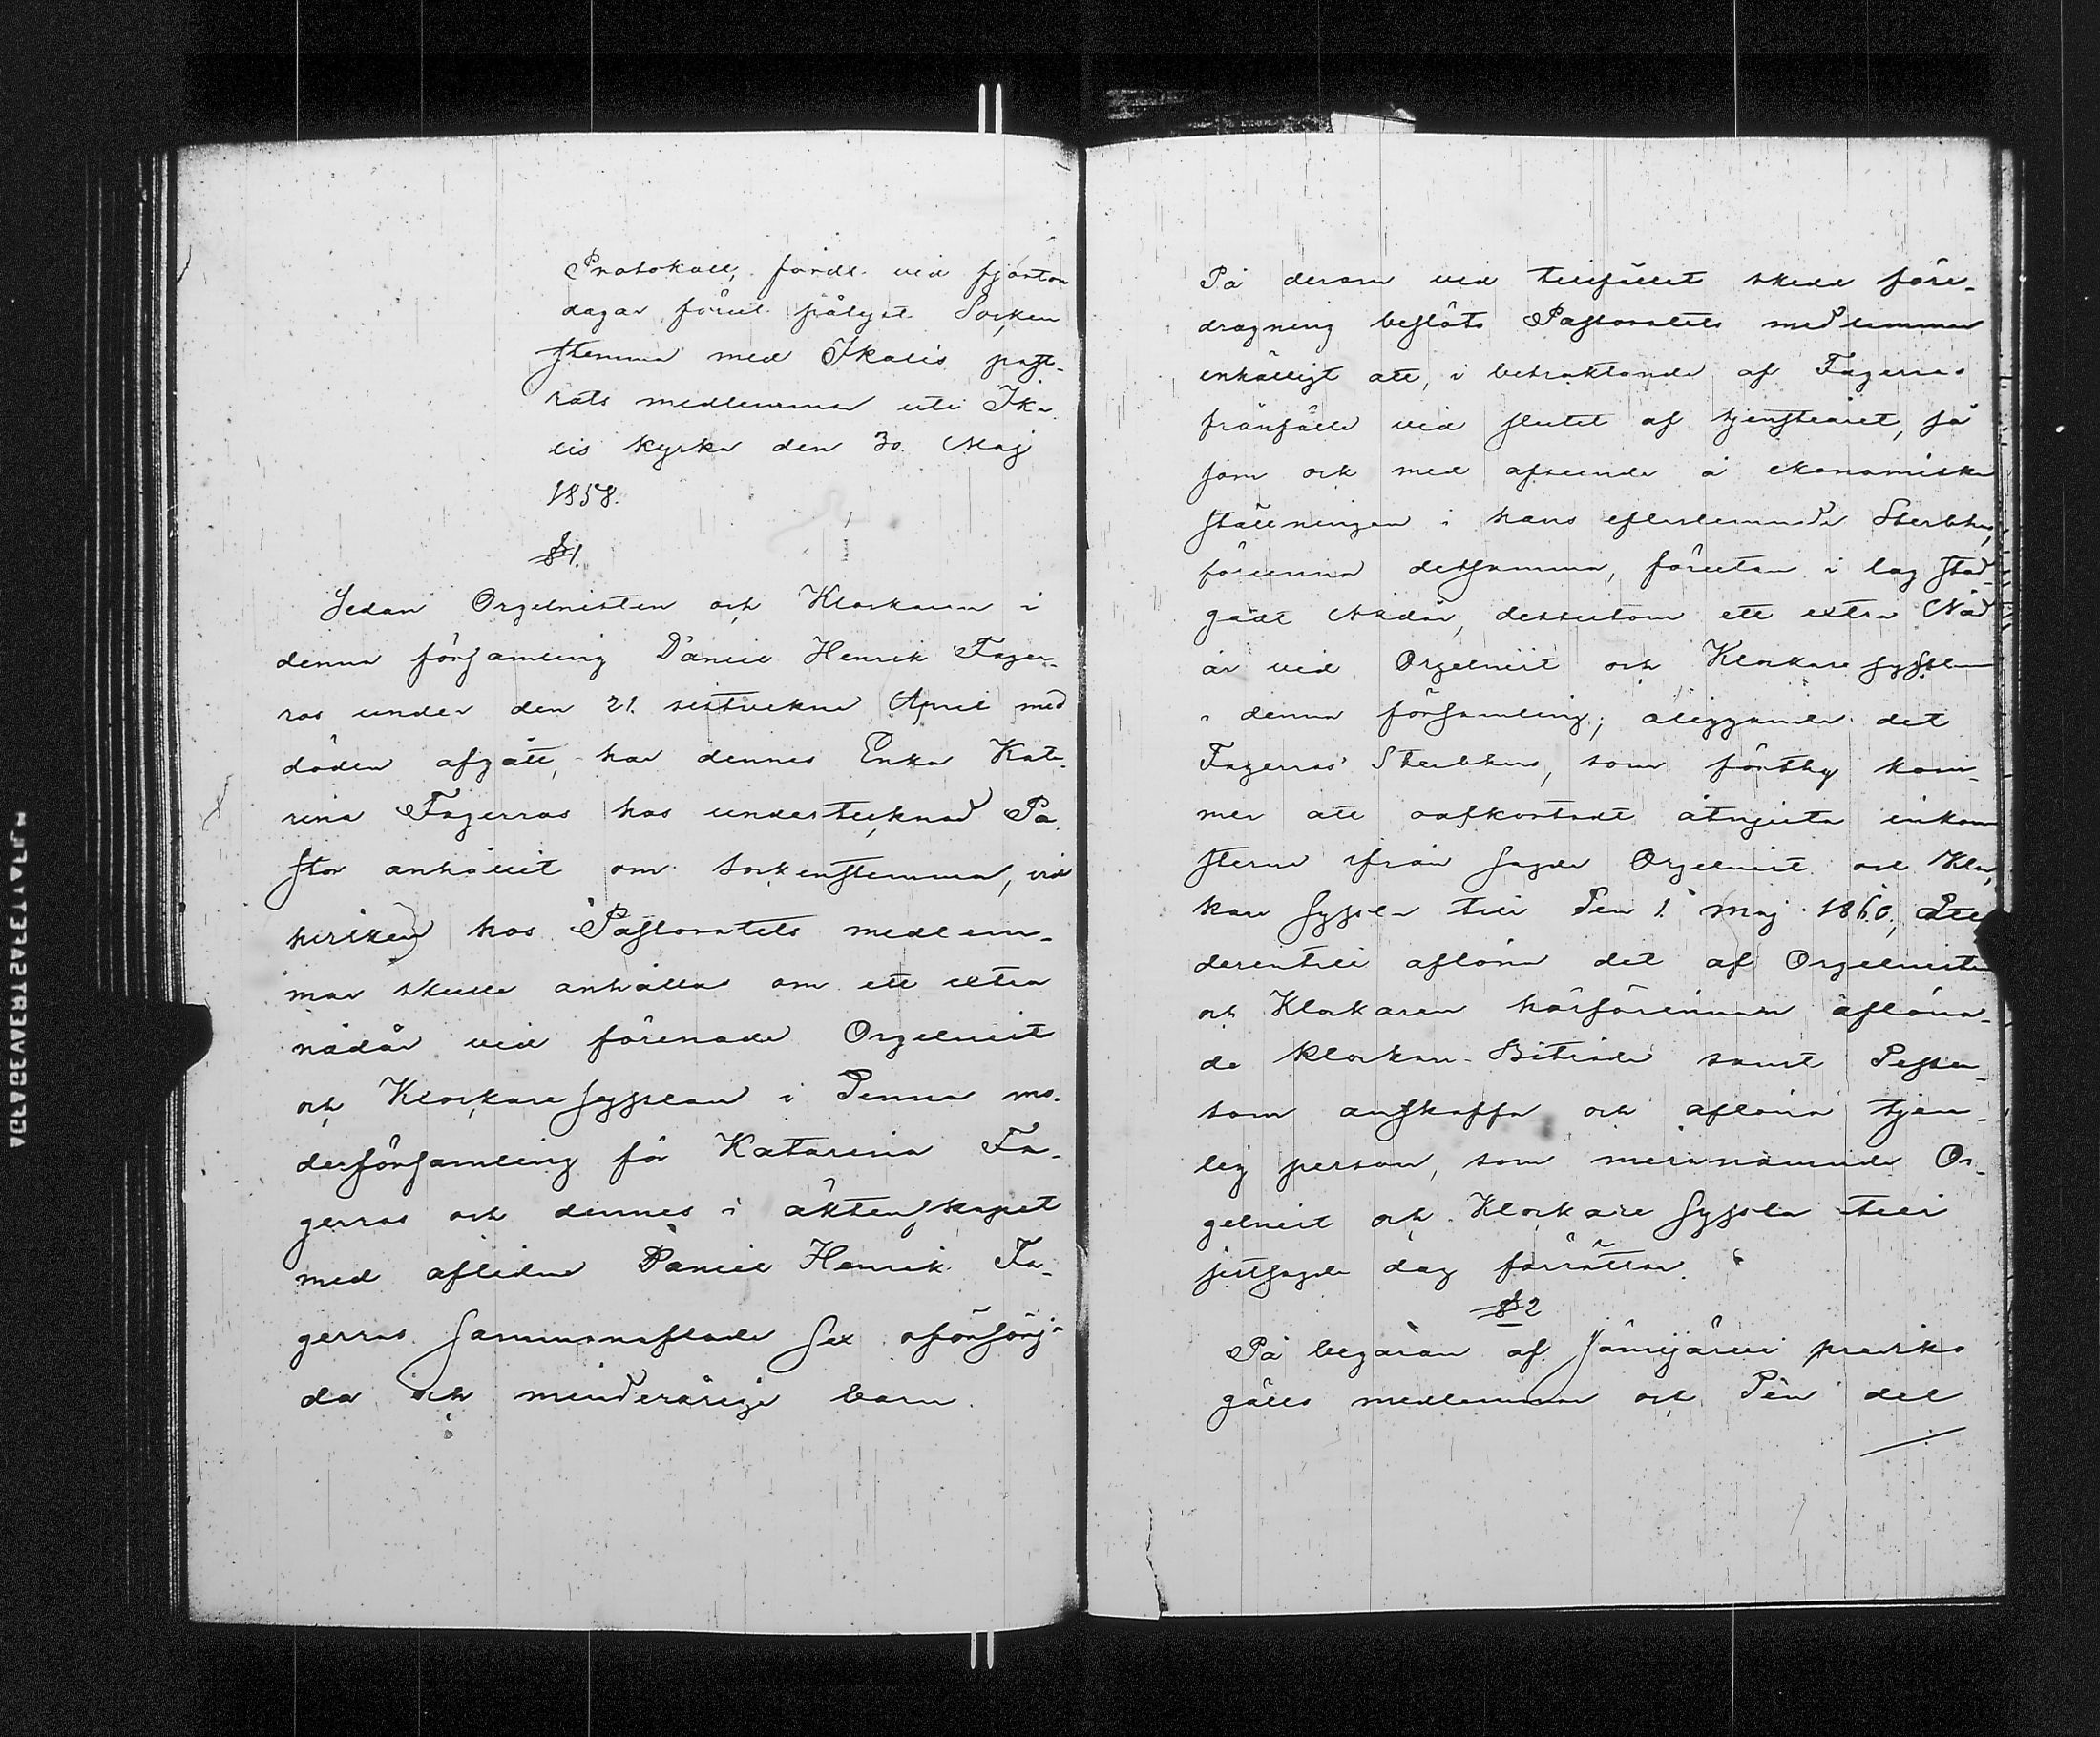 Protokoll, fördt vid fjorton
dagar förut pålyst Socken
stemma med Ikalis past-
rats medlemmar uti Ika
lis kyrka den 30. Maj
1858.
§ 1.
Sedan Orgelnisten och Klockaren i
denna församling Daniel Henrik Fager-
ros under den 21. sistvekne April med
döden afgått, har dennes Enka Kata-
rina Fagerros hos undertecknad Pa
stor anhållit om sockenstemma, vid
hvilken hos Pastoratets medlem-
mar skulle anhållas om ett extra
nådår vid förenade Orgelnist
och Klockare sysslan i denna mo-
derförsamling för Katarina Fa-
gerros och dennes i äktenskapet
med aflidne Daniel Henrik Fa-
gerros sammanaflade sex oförsörj-
da och minderårige barn.
På derom vid tillfället skedd före-
dragning beslöts Pastoratets medlemmar
enhälligt att, i betraktande af Fagerros
frånfälle vid slutet af tjensteåret, så
som ock med afseende å ekonomiska
ställningen i hans efterlemnade Sterbhus,
förunna detsamma, förutan i lag stad-
gadt Nådår, dessutom ett extra Nåd
år vid Orgelnist och Klockare sysslan
i denna församling; åliggande det
Fagerros' Sterbhus, som förthy kom-
mer att oafkortadt åtnjuta inkom
sterna ifrån sagde Orgelnist och Kloc-
kare syssla till den 1. Maj 1860, att
derintill aflöna det af Orgelnisten
och Klockaren härförinnan aflöna-
de Klockare-Biträde samt dessu-
tom anskaffa och aflöna tjen-
lig person, som meranämnde Or-
gelnist och Klockare syssla till
sistsagde dag förrättar.
§ 2
På begäran af Jämijärvi prediko
gälls medlemmar och den del